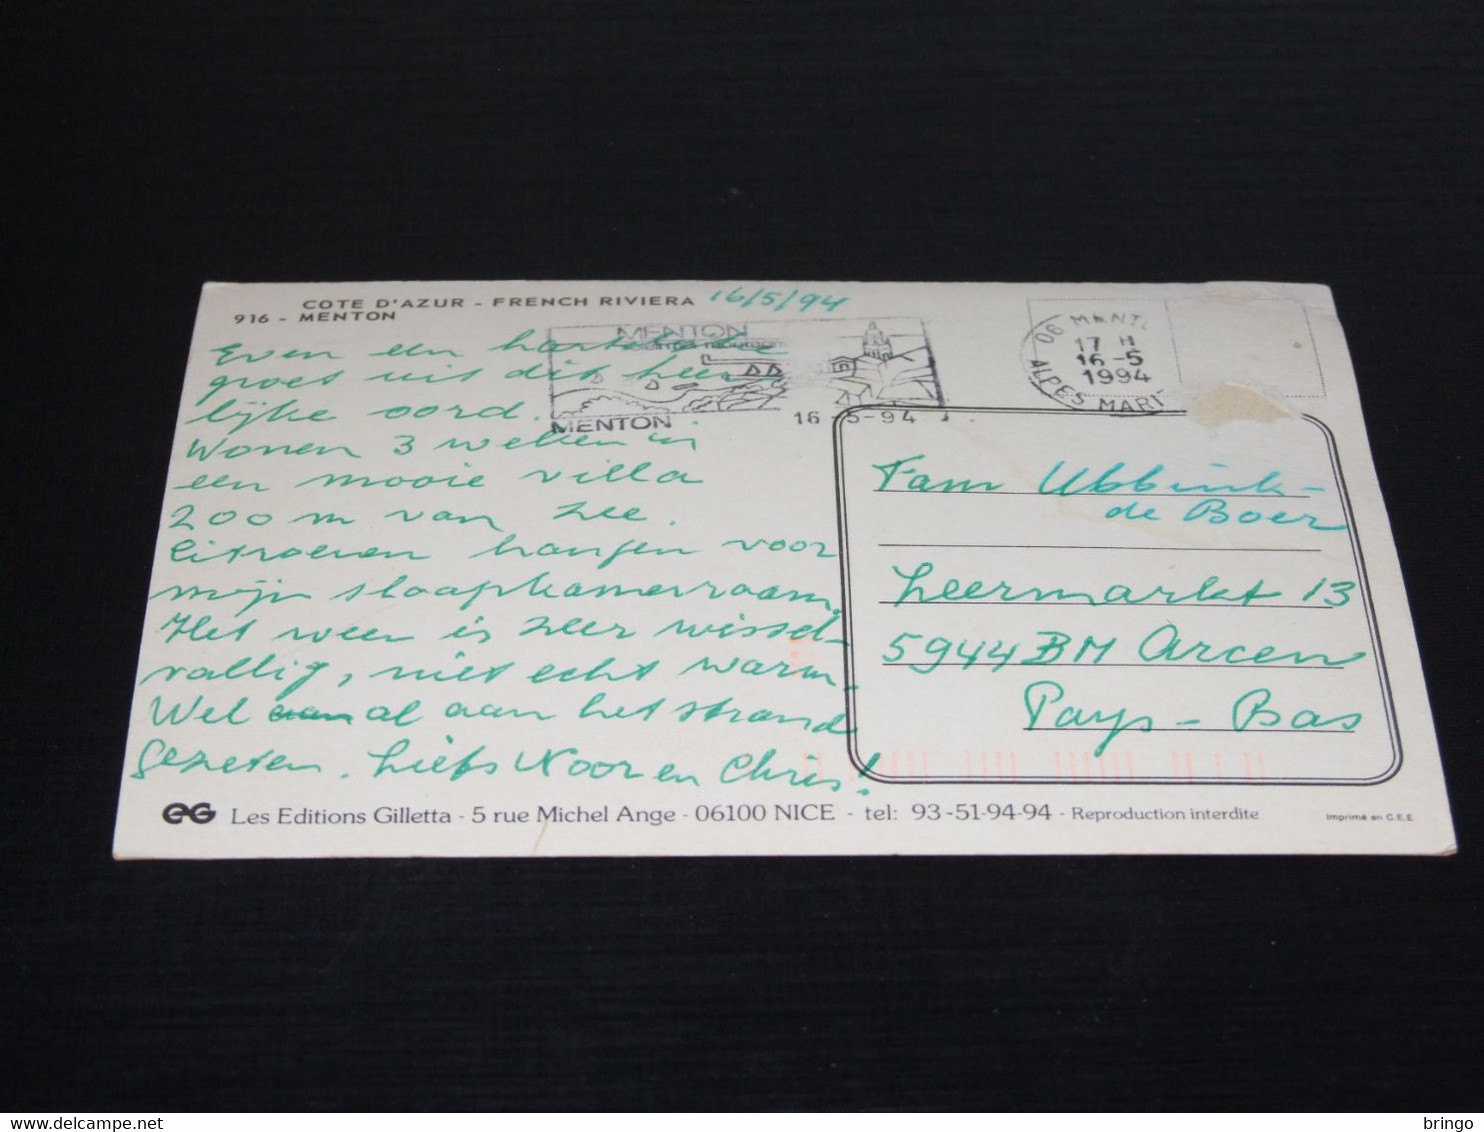 COTE D'AZUR - FRENCH RIVIERA 16/5/94
916 - MENTON
Even een hartelijke
groet uit dit heer
lijke oord.
Wonen 3 weken in
een mooie villa
200 m van zee.
Citroenen hangen voor
mijn slaapkamerraam.
Het weer is zeer wissel-
vallig, niet echt warm.
Wel al aan het strand
gezeten. Liefs Noor en Chris!
MENTON
MENTON 16-5-94
06 MENTO
17 H
16-5
1994
ALPES MARI
Fam Ubbink-
de Boer
Leermarkt 13
5944 BM Arcen
Pays-Bas
eG Les Editions Gilletta - 5 rue Michel Ange - 06100 NICE - tel: 93-51-94-94 - Reproduction interdite
Imprimé en C.E.E.
delcampe.net
bringo